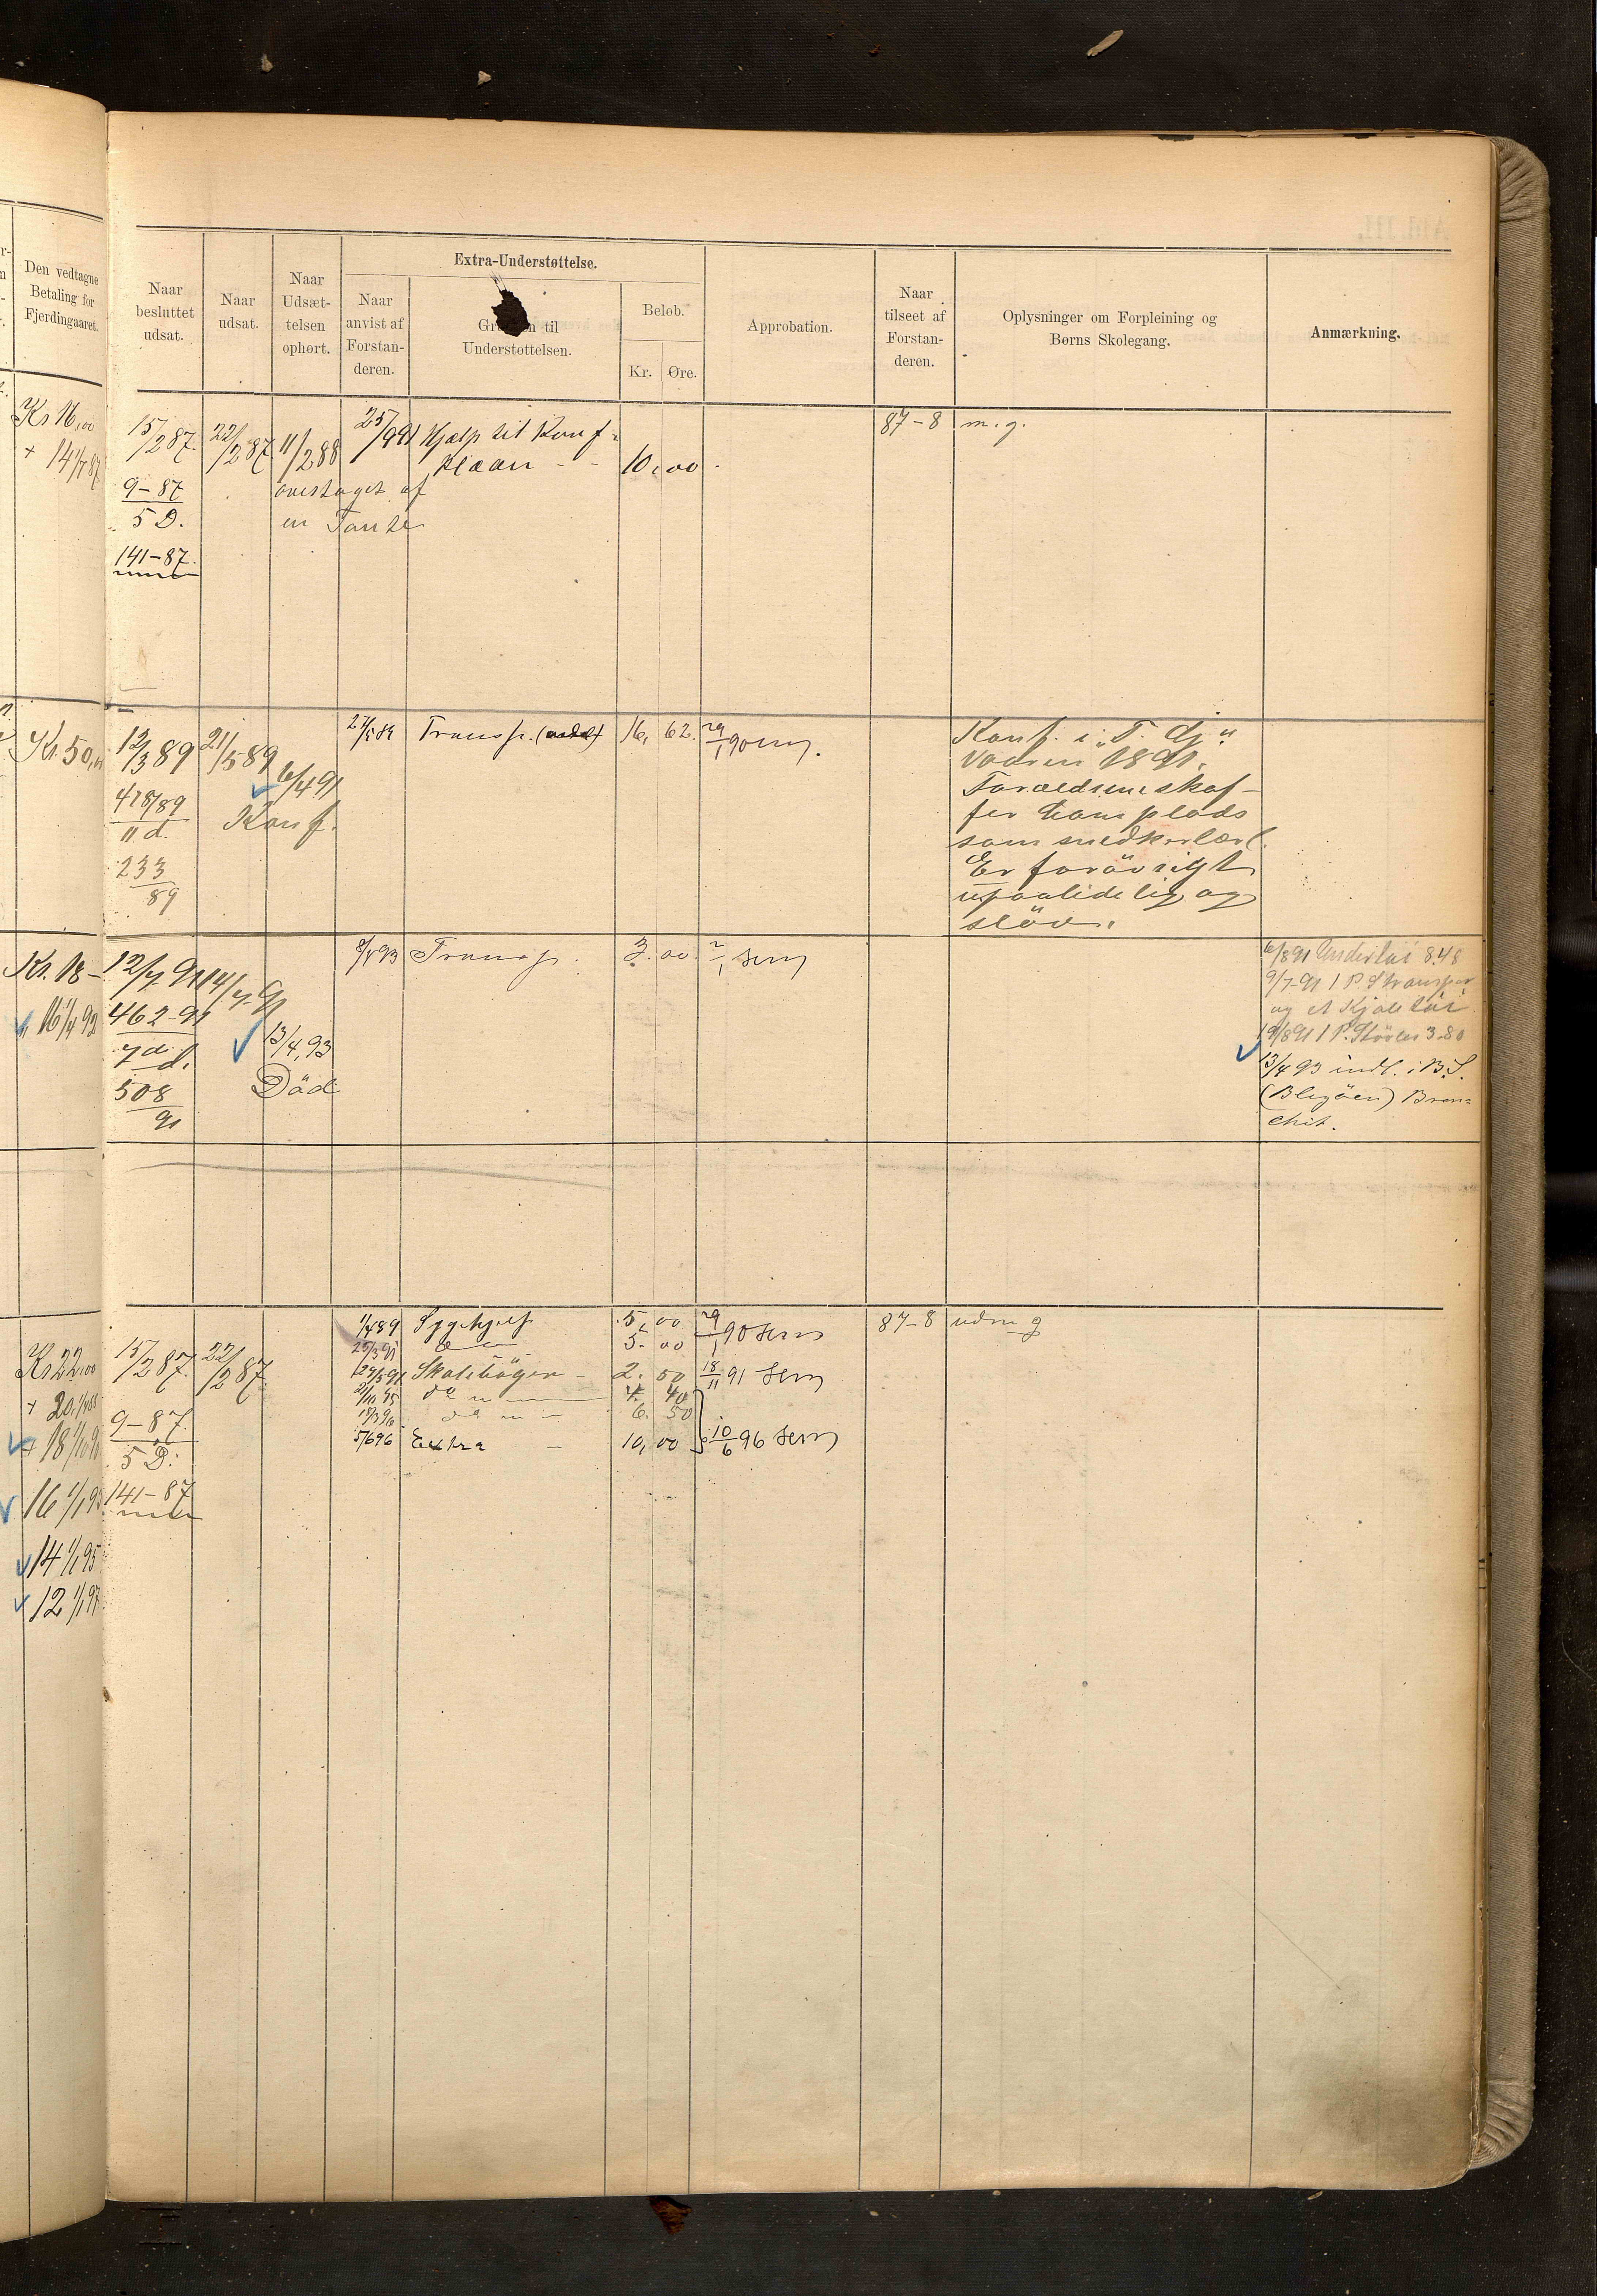 Den vedtagne
Betaling for
Fjerdingaaret.
Naar
besluttet
udsat.
Naar
udsat.
Naar
Udsæt-
telsen
ophørt.
Extra-Understøttelse.
Naar
anvist af
Forstan-
deren.
Gr n til
Understøttelsen.
Beløb.
Kr. Øre.
Approbation.
Naar
tilseet af
Forstan-
deren.
Oplysninger om Forpleining og
Børns Skolegang.
Anmærkning.
Kr 16,00
15/2 87. 22/2 87 11/2 88 25/9 91 Hjælp til Konf= 87-8 m. g.
klæder - - 10,00
9-87 overtaget af
5 D. en Tante
141-87.
Kr. 50,00 12/3 89 21/5 89 6/4 91 Transp. 16, 62. 29/1 90
418/89 Konf.
11 d.
233
89
Konf. i „T. Gj"
Vaaren 1891.
Forældrene skaf-
fer ham plads
som snedkerlærl.
Er forøvrigt
upaalidelig og
sløv.
Kr. 18 - 12/7 91 14/7 91 Transp. 3.00
16 1/4 92 462-91
7de d. 13/4 93
508 Død
91
6/8 91 Undertøi 8.48
9/7-91 1 P. Strømper
og et Kjoletøi
19/8 91 1 P. Støvler 3.80
13/4 93 indl. i B.S.
(Blegøen) Bron=
chit.
Kr 22,00 15/2 87. 22/2 87 1/4 89 Sygehjelp 5,00 29/1 90 87-8 udm g
5.00
Skolebøger - 2.50 18/11 91
do 4. 40
do 6. 50
5/6 96 Extra - 10,00 10/6 96
9-87
5 D.
141-87
16 1/1 93
14 1/1 95
12 1/1 97